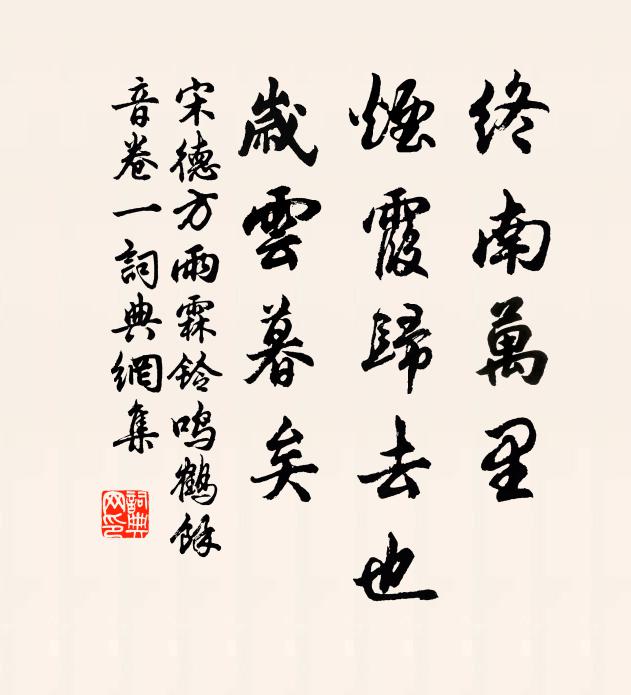 終南萬里
煙霞歸去也
歲雲暮矣
宋德方雨霖鈴鳴鶴餘
音卷一詞典網集
詞典
网印